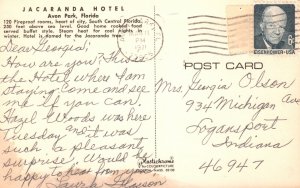 JACARANDA HOTEL
Avon Park, Florida
120 Fireproof rooms, heart of city, South Central Florida.
250 feet above sea level. Good home cooked food
served buffet style. Steam heat for cool nights in
winter. Hotel is named for the Jacaranda tree.
Dear Georgia;
How are you? This is
the Hotel where I am
staying. Come and see
me if you can.
Hazel Woods was here
Tuesday and it was
such a pleasant
surprise. Would be
happy to hear from you
Laura
POST CARD
EISENHOWER·USA
Mrs. Georgia Olson
934 Michigan Ave
Logansport
Indiana
46947